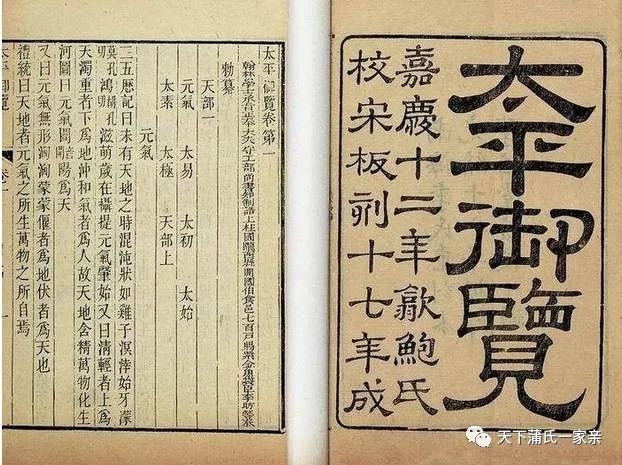 太平御覽
嘉慶十二年歙鮑氏
校宋板刻十七年成
太平御覽卷第一
翰林學士承旨正奉大夫守工部尚書知制誥上柱國隴西縣開國伯食邑七百戶賜紫金魚袋臣李昉等奉
勅纂
天部一
元氣 太易 太初 太始
太素 太極 天部上
元氣
三五歷記曰未有天地之時混沌狀如雞子溟涬始牙濛
鴻滋萌歲在攝提元氣肇始又曰清輕者上爲
天濁重者下爲地沖和氣者爲人故天地含精萬物化生
河圖曰元氣闓陽爲天
又曰元氣無形洶洶蒙蒙偃者爲地伏者爲天也
禮統曰天地者元氣之所生萬物之所自焉
太平御覽 卷一
天下蒲氏一家亲